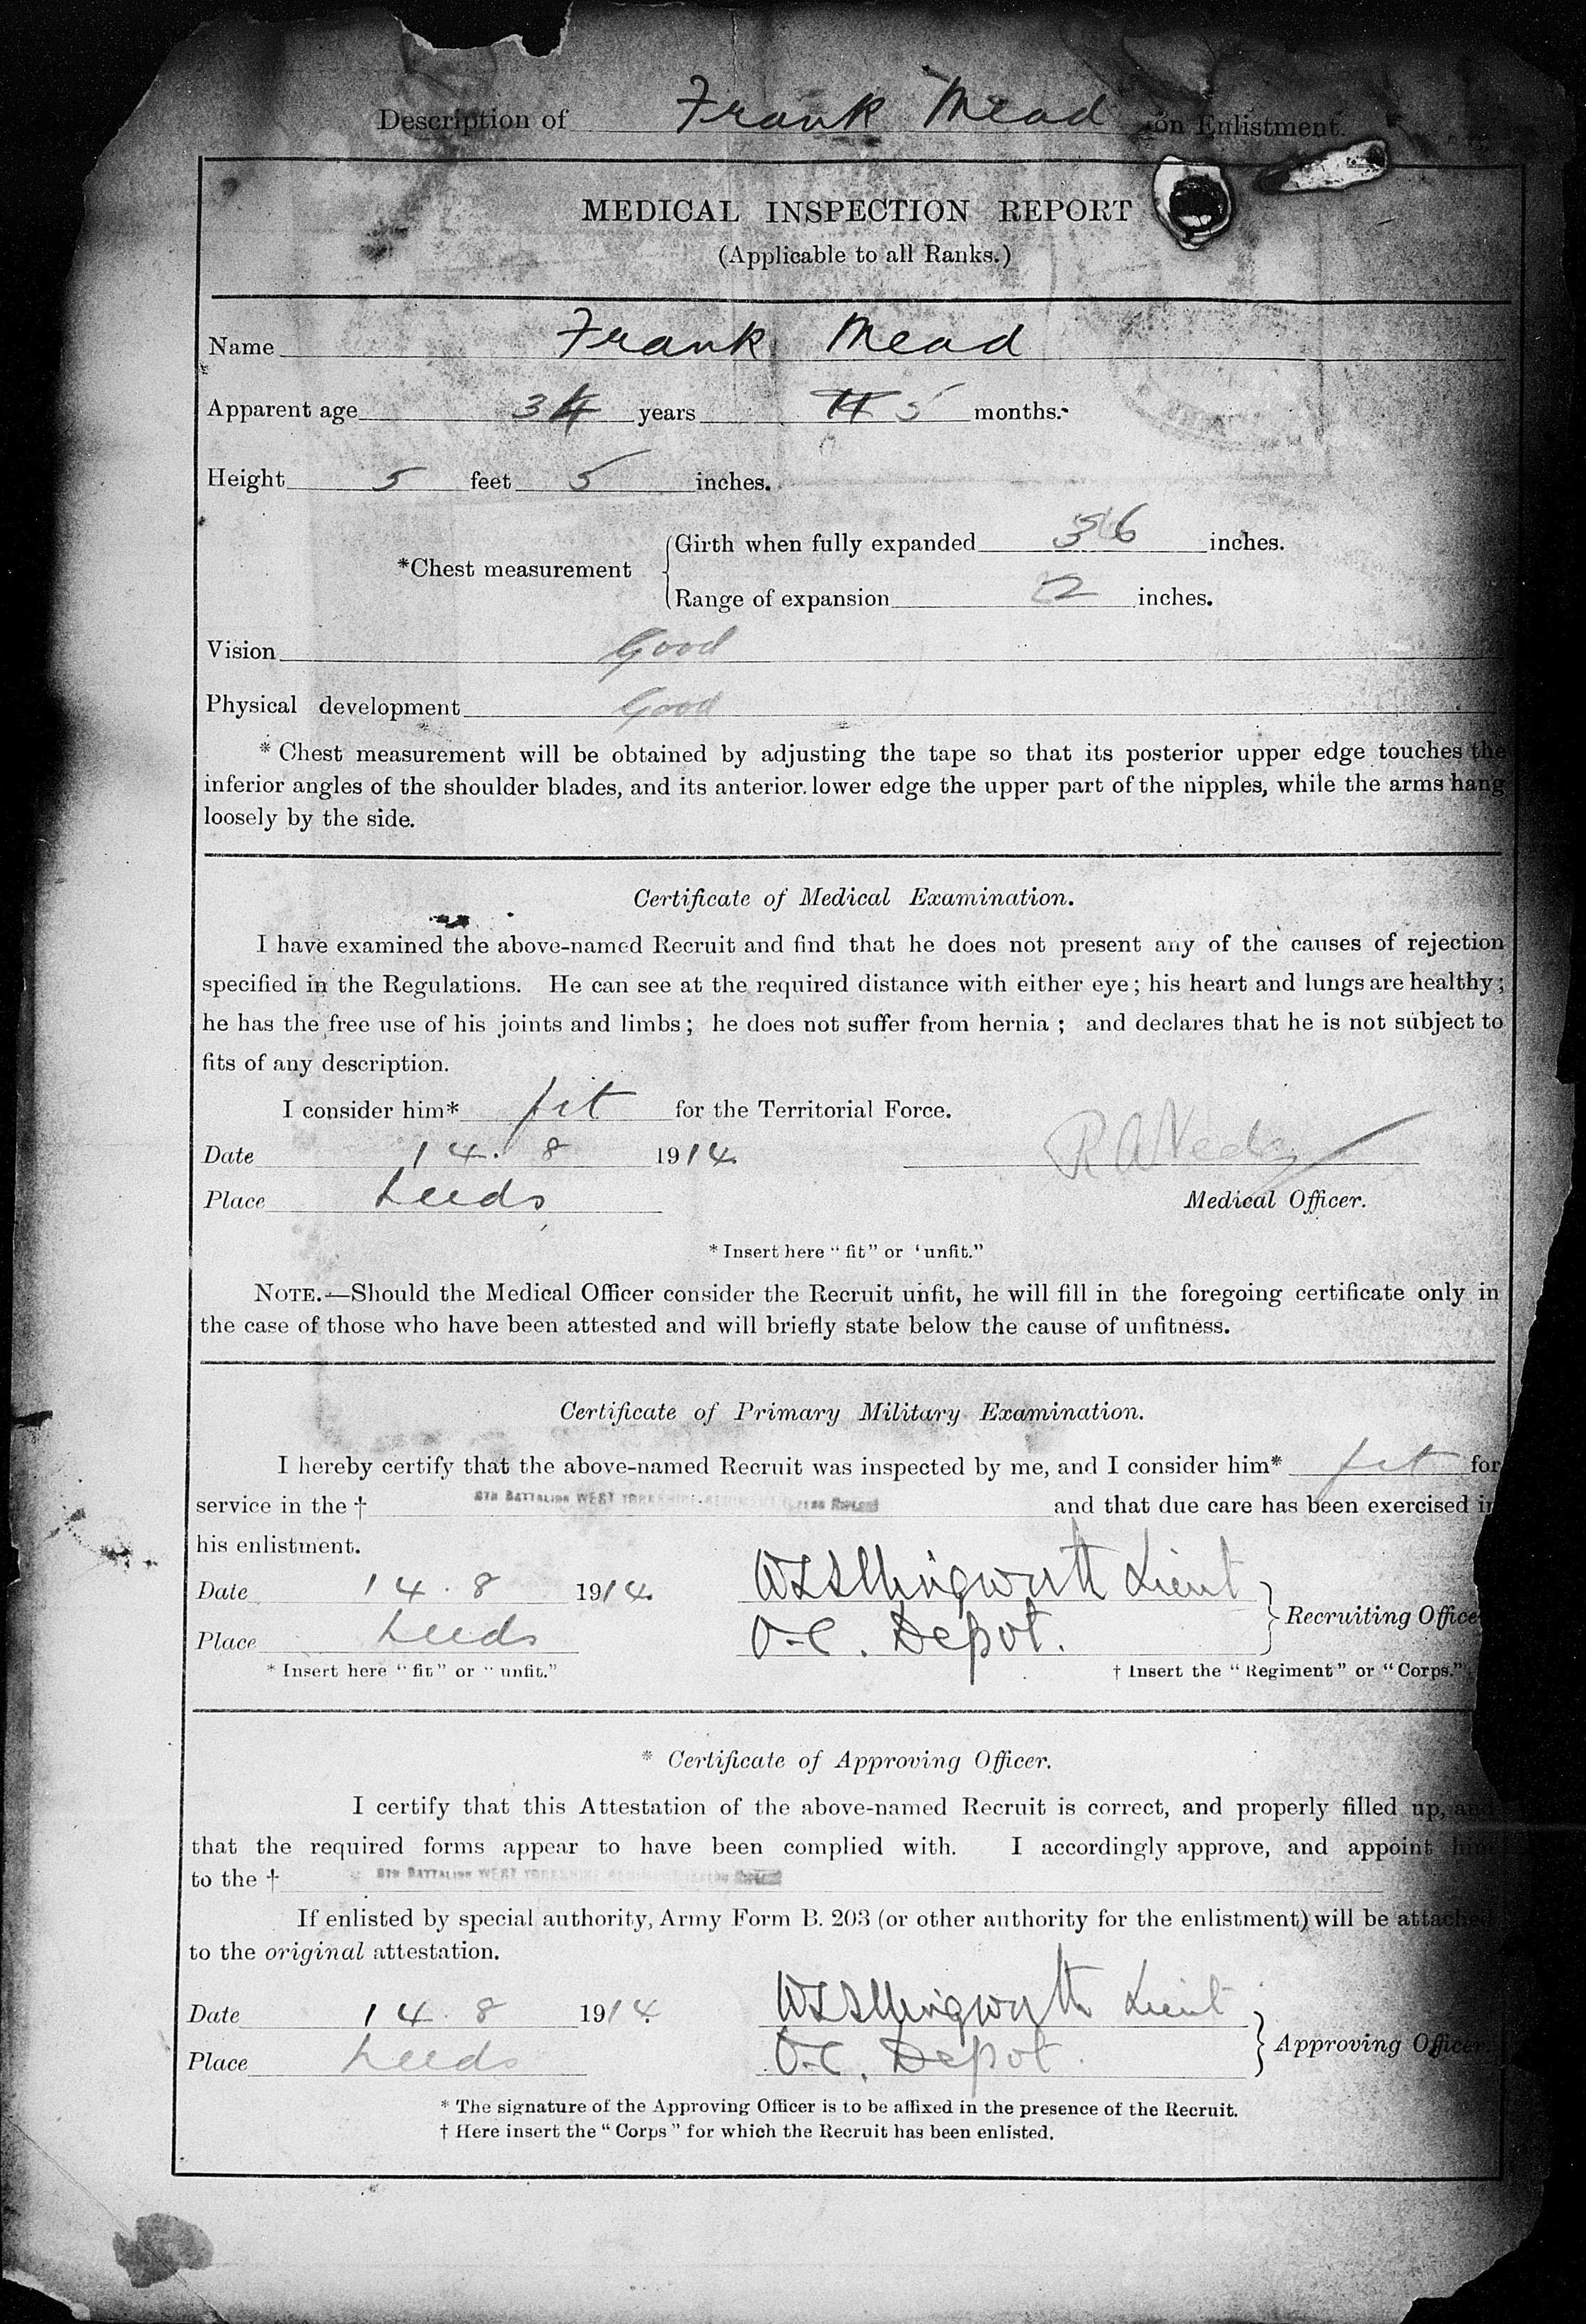 Description of Frank Mead on Enlistment.
MEDICAL INSPECTION REPORT
(Applicable to all Ranks.)
Name Frank Mead
Apparent age 34 years 5 months.
Height 5 feet 5 inches.
*Chest measurement
Girth when fully expanded 36 inches.
Range of expansion 2 inches.
Vision Good
Physical development Good
* Chest measurement will be obtained by adjusting the tape so that its posterior upper edge touches the
inferior angles of the shoulder blades, and its anterior lower edge the upper part of the nipples, while the arms hang
loosely by the side.
Certificate of Medical Examination.
I have examined the above-named Recruit and find that he does not present any of the causes of rejection
specified in the Regulations. He can see at the required distance with either eye; his heart and lungs are healthy;
he has the free use of his joints and limbs; he does not suffer from hernia; and declares that he is not subject to
fits of any description.
I consider him* fit for the Territorial Force.
Date 14. 8 1914
Place Leeds
Medical Officer.
* Insert here "fit" or 'unfit."
NOTE.—Should the Medical Officer consider the Recruit unfit, he will fill in the foregoing certificate only in
the case of those who have been attested and will briefly state below the cause of unfitness.
Certificate of Primary Military Examination.
I hereby certify that the above-named Recruit was inspected by me, and I consider him* fit for
service in the † 8TH BATTALION WEST YORKSHIRE REGIMENT (LEEDS RIFLES) and that due care has been exercised in
his enlistment.
Date 14. 8 1914. Illingworth Lieut
Place Leeds O.C. Depot. Recruiting Office
* Insert here "fit" or "unfit." † Insert the "Regiment" or "Corps."
* Certificate of Approving Officer.
I certify that this Attestation of the above-named Recruit is correct, and properly filled up, and
that the required forms appear to have been complied with. I accordingly approve, and appoint him
to the † 8TH BATTALION WEST YORKSHIRE REGIMENT (LEEDS RIFLES)
If enlisted by special authority, Army Form B. 203 (or other authority for the enlistment) will be attached
to the original attestation.
Date 14. 8 1914. Illingworth Lieut
Place Leeds O.C. Depot. Approving Officer.
* The signature of the Approving Officer is to be affixed in the presence of the Recruit.
† Here insert the "Corps" for which the Recruit has been enlisted.